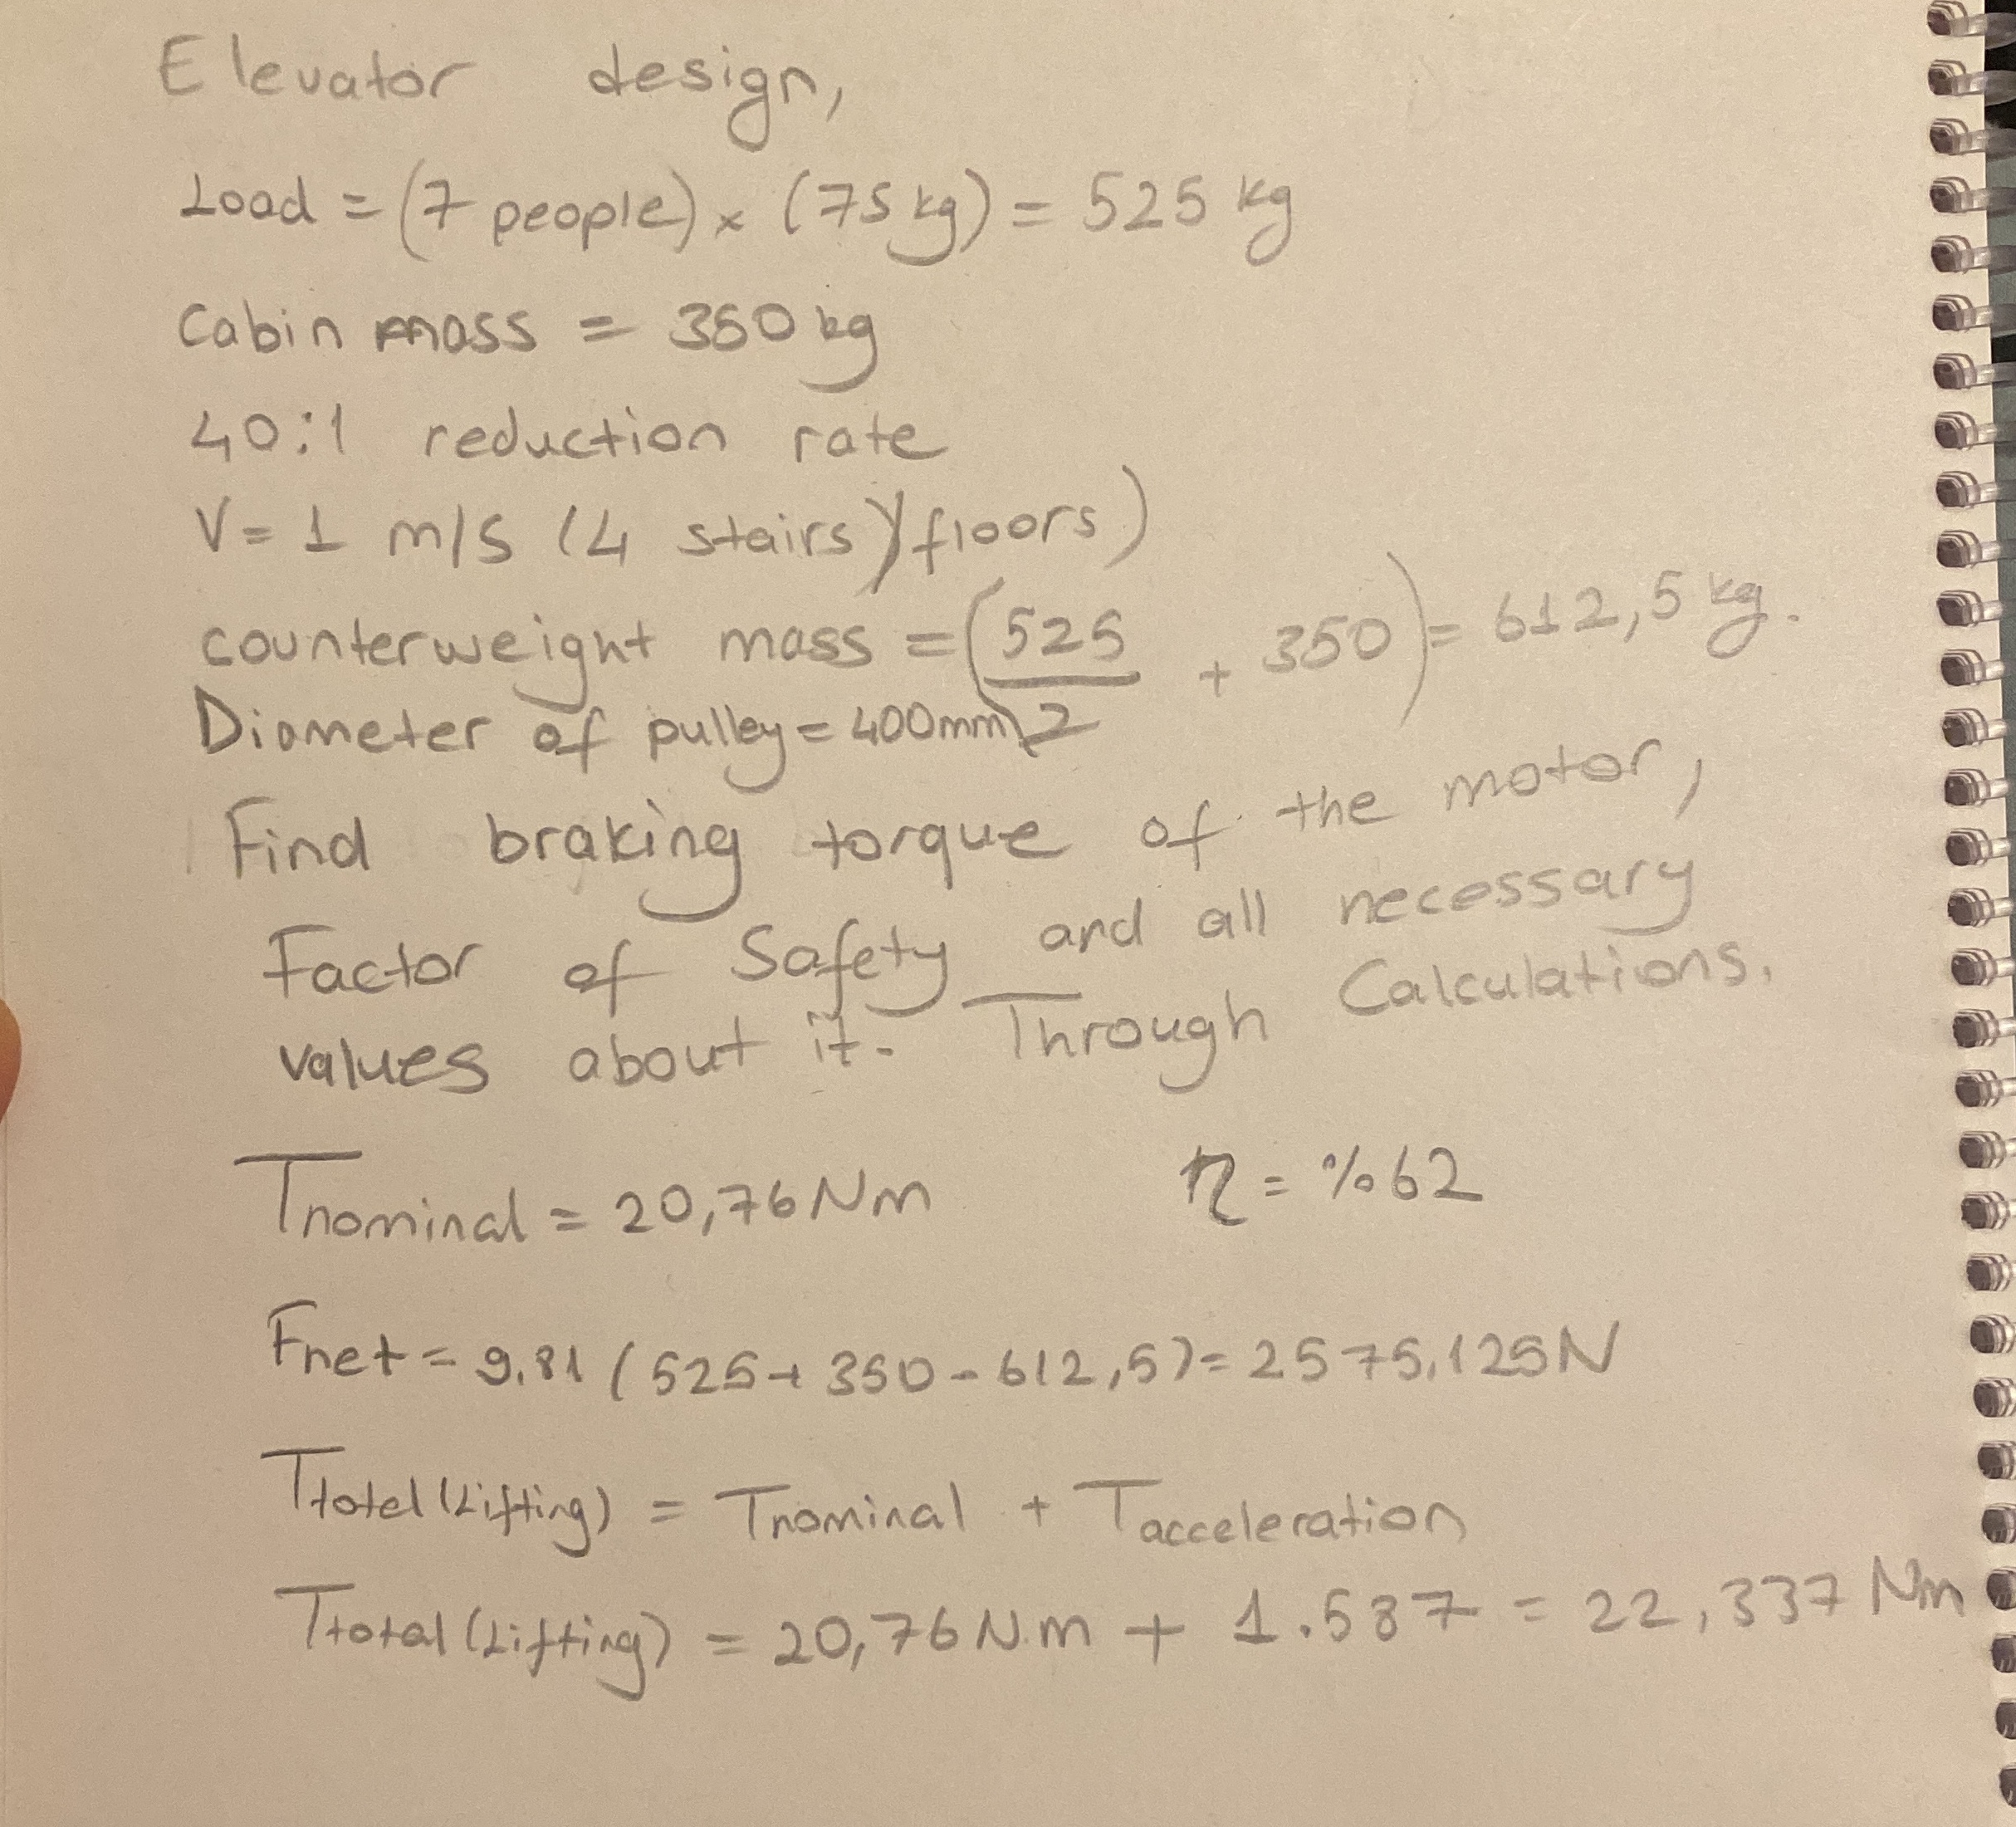 Elevator design,
Load = (7 people) x (75 kg) = 525 kg
Cabin mass = 350 kg
40:1 reduction rate
V = 1 m/s (4 stairs)/floors)
counterweight mass = (525/2 + 350) = 612,5 kg.
Diameter of pulley = 400mm
Find braking torque of the motor,
Factor of Safety and all necessary
values about it. Through Calculations.
Tnominal = 20,76 Nm η = %62
Fnet = 9.81 (525 + 350 - 612,5) = 2575,125N
Ttotel (Lifting) = Tnominal + Tacceleration
Ttotal (Lifting) = 20,76 N.m + 1.587 = 22,337 Nm